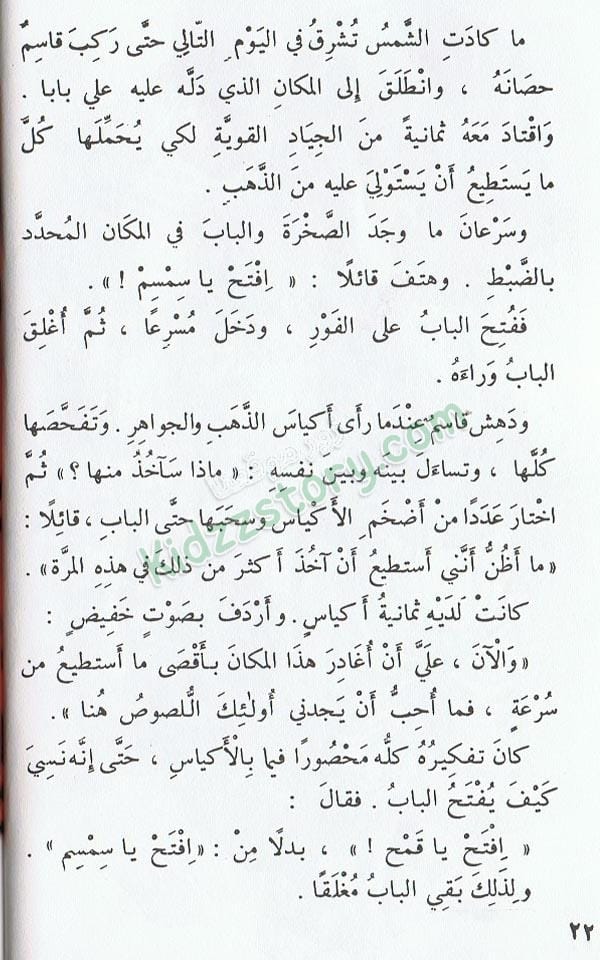 ما كادَتِ الشَّمسُ تُشْرِقُ في اليَوْمِ التّالِي حتَّى رَكِبَ قاسِمٌ
حصَانَهُ ، وانْطَلَقَ إلى المكانِ الذي دَلَّه عليه علي بابا .
وَاقْتادَ مَعَهُ ثمانيةً منَ الجِيَادِ القويَّةِ لكي يُحَمِّلَها كُلَّ
ما يَستَطِيعُ أَنْ يَسْتَوْلِيَ عليه منَ الذَّهَبِ .
وسَرْعانَ ما وجَدَ الصَّخْرَةَ والبابَ في المكَانِ المُحدَّد
بالضَّبْطِ . وهتَفَ قائلًا : « اِفتَحْ يا سِمْسِمْ ! » .
فَفُتِحَ البابُ على الفَوْرِ ، ودخَلَ مُسْرِعًا ، ثُمَّ أُغْلِقَ
البابُ وَراءَهُ .
ودَهِش قاسِمٌ عِنْدَما رأى أكياسَ الذَّهَبِ والجواهرِ . وتَفَحَّصَها
كُلَّها ، وتساءَل بينَه وبينَ نفسِه : « ماذا سَآخُذُ منها ؟ » ثُمَّ
اختارَ عَدَدًا منْ أضْخَمِ الأكْياسِ وسحَبَها حتَّى البابِ ، قائِلًا :
« ما أظُنُّ أنَّني أستطيعُ أَنْ آخُذَ أكثرَ من ذلكَ في هذِهِ المرَّة » .
كانَتْ لَدَيْهِ ثمانيةُ أكياسٍ . وأرْدَفَ بصَوْتٍ خَفِيضٍ :
«وَالْآنَ ، علَيَّ أَنْ أُغادِرَ هذَا المكانَ بـأَقْصَى ما أَستطيعُ من
سُرْعَةٍ ، فما أُحِبُّ أَنْ يَجدني أُولٰئِكَ اللُّصوصُ هُنا » .
كانَ تفكِيرُهُ كلُّه مَحْصُورًا فيما بِالْأكياسِ ، حَتَّى إنَّه نَسِيَ
كَيْفَ يُفْتَحُ البابُ . فقالَ :
« اِفتَحْ يا قَمْح ! » ، بدلًا مِنْ : «اِفتَحْ يا سِمْسِم » .
ولِذٰلِكَ بَقِي البابُ مُغْلَقًا .
٢٢
Kidzzstory.com